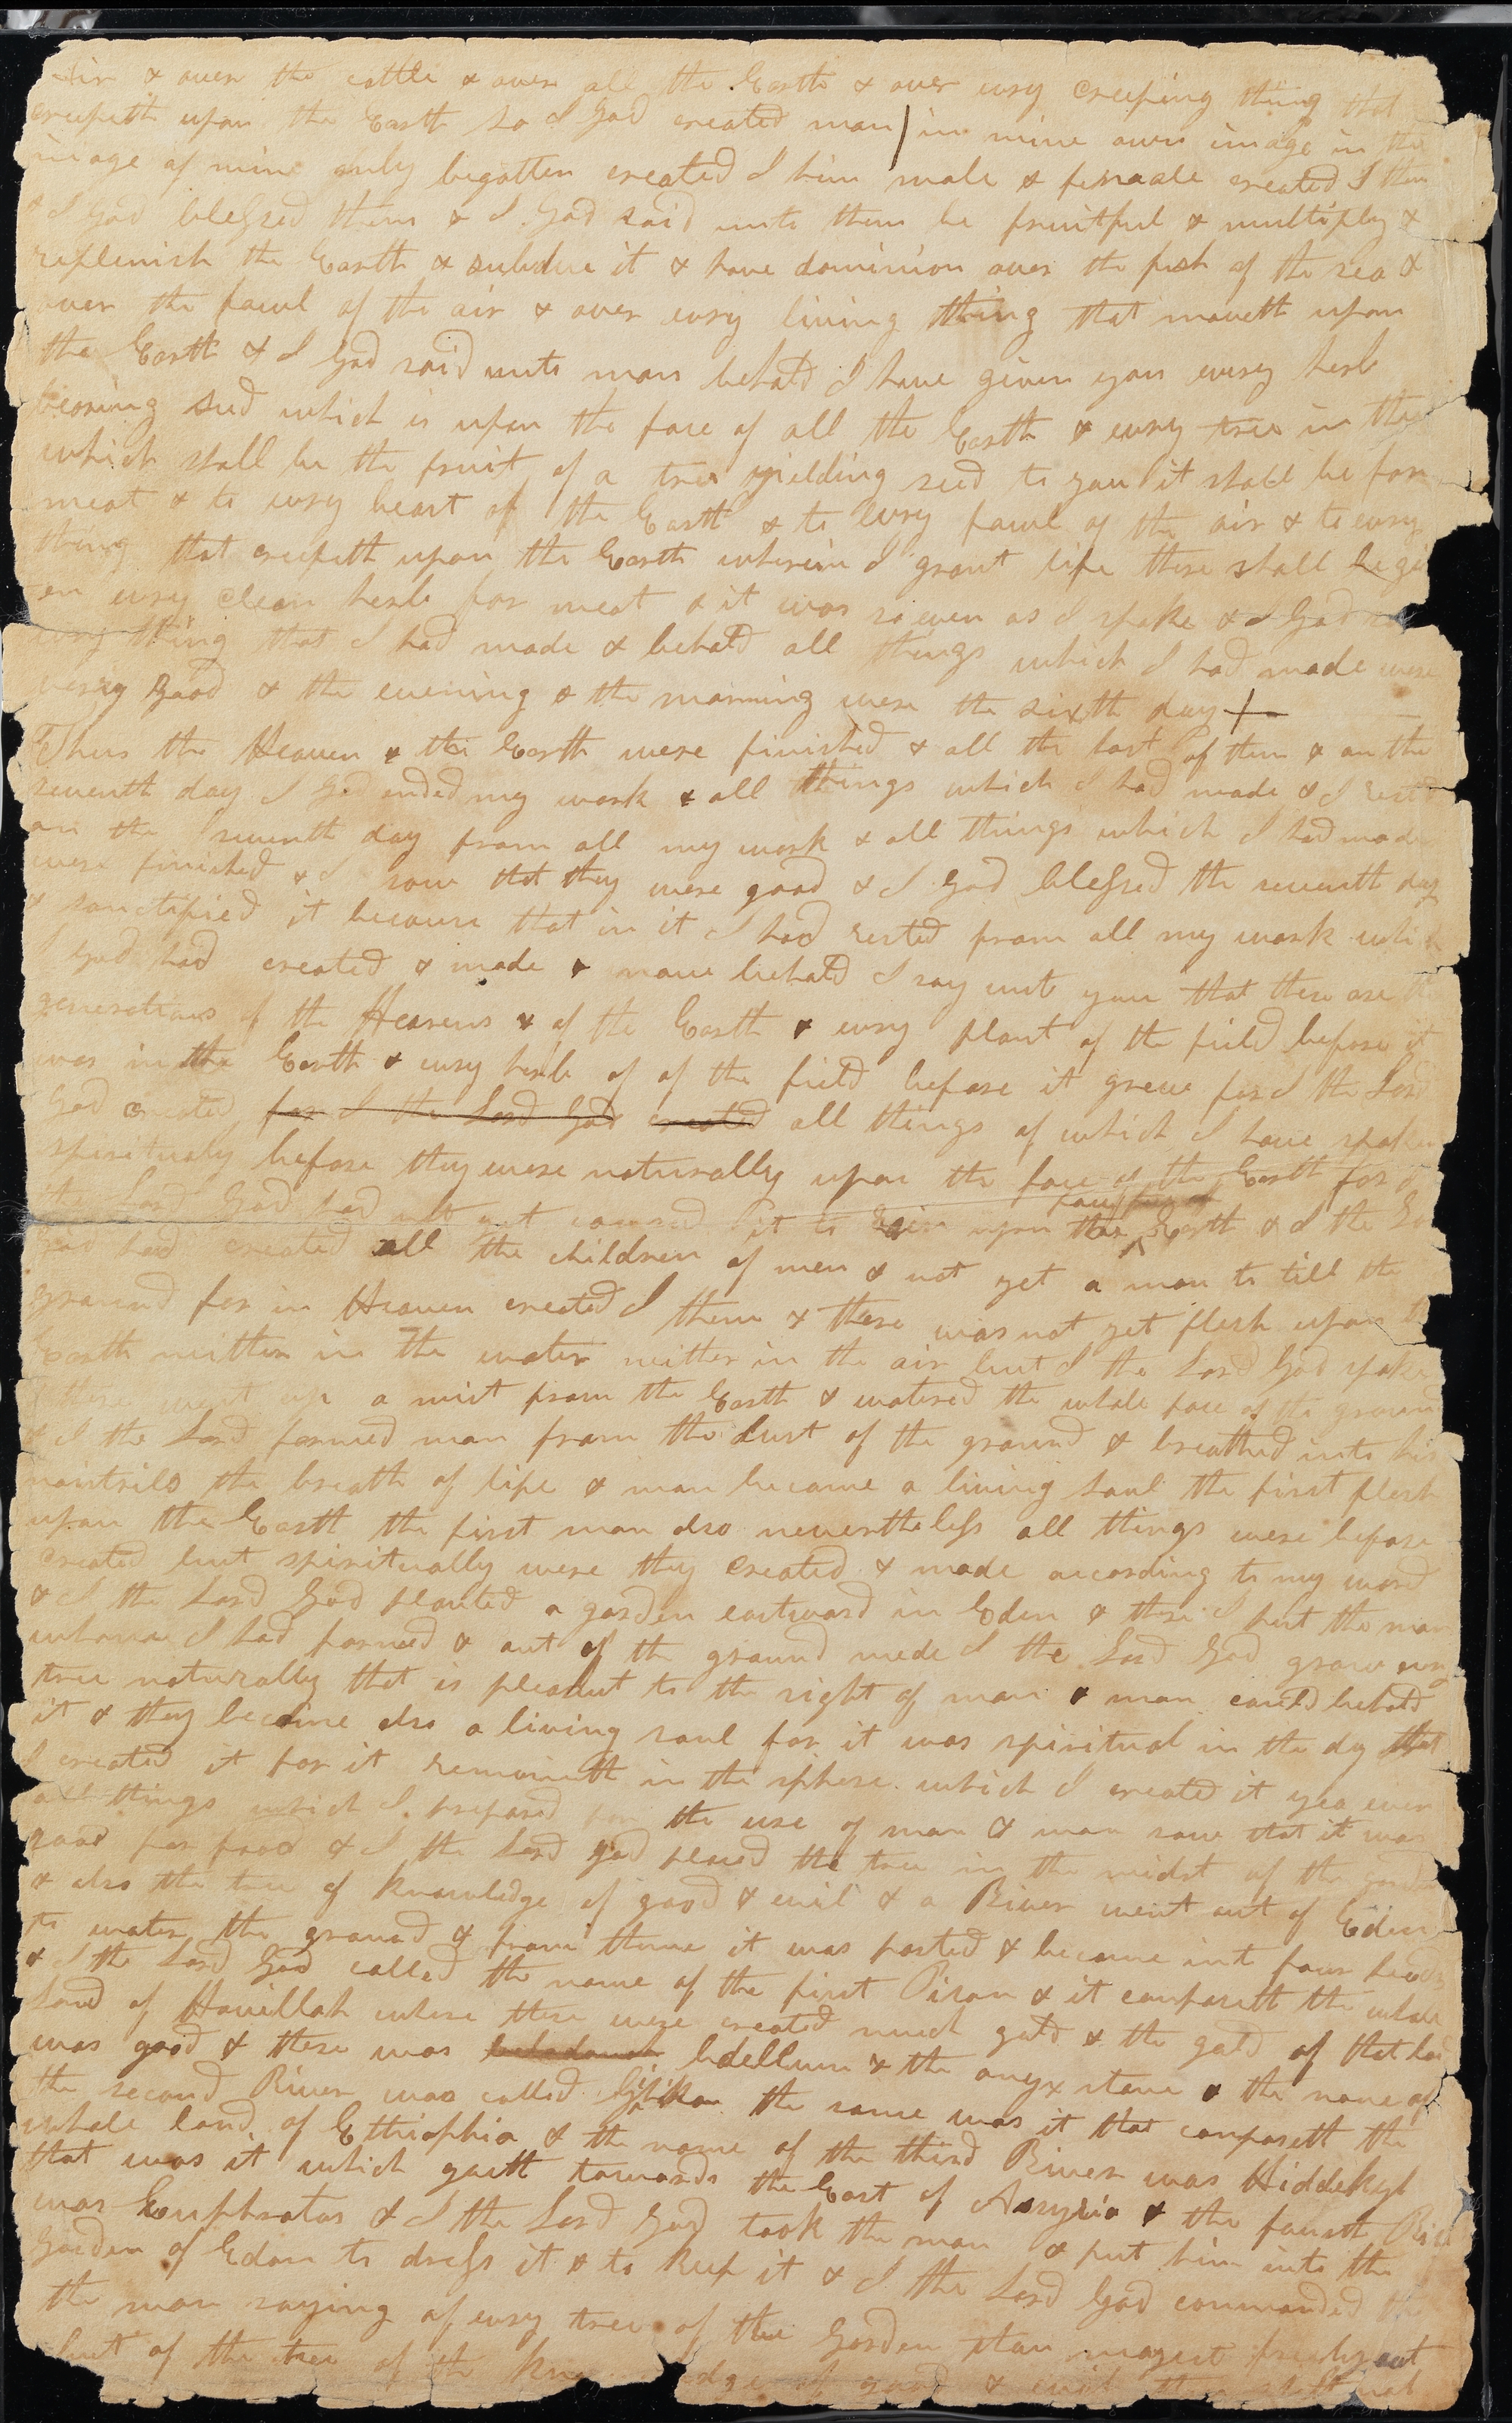 air & over the cattle & over all the Earth & over evry creeping thing that
creepeth upon the Earth so I God created man in mine own image in the
image of mine only begotten created I him male & female created I them
& I God blessed them & I God said unto them be fruitful & multiply &
replenish the Earth & subdue it & have dominion over the fish of the sea &
over the fowl of the air & over evry living thing that moveth upon
the Earth & I God said unto man behold I have given you every herb
bearing seed which is upon the face of all the Earth & evry tree in the
which shall be the fruit of a tree yielding seed to you it shall be for
meat & to evry beast of the Earth & to evry fowl of the air & to evry
thing that creepeth upon the Earth wherein I grant life there shall be giv
en evry clean herb for meat & it was so even as I spake & I God saw
evry thing that I had made & behold all things which I had made were
very good & the evening & the morning were the sixth day
Thus the Heaven & the Earth were finished & all the host of them & on the
seventh day I God ended my work & all things which I had made & I rested
on the seventh day from all my work & all things which I had made
were finished & I saw that they were good & I God blessed the seventh day
& sanctified it because that in it I had rested from all my work which
I God had created & made & now behold I say unto you that these are the
generations of the Heavens & of the Earth & evry plant of the field before it
was in the Earth & evry herb of of the field before it grew for I the Lord
God created for I the Lord God created all things of which I have spoken
spiritualy before they were naturally upon the face of the Earth for I
the Lord God had not yet caused it to rain upon the face of Earth & I the Lord
God had created all the children of men & not yet a man to till the
ground for in Heaven created I them & there was not yet flesh upon the
Earth neither in the water neither in the air but I the Lord God spake
& there went up a mist from the Earth & watered the whole face of the ground
& I the Lord formed man from the dust of the ground & breathed into his
nostrils the breath of life & man became a living soul the first flesh
upon the Earth the first man also nevertheless all things were before
created but spiritually were they created & made according to my word
& I the Lord God planted a garden eastward in Eden & there I put the man
whom I had formed & out of the ground made I the Lord God grow evry
tree naturally that is pleasant to the sight of man & man could behold
it & they become also a living soul for it was spiritual in the dy that
I created it for it remaineth in the sphere which I created it yea even
all things which I prepared for the use of man & man saw that it was
good for food & I the Lord God placed the tree in the midst of the garden
& also the tree of knowledge of good & evil & a River went out of Eden
to water the ground & from thence it was parted & became int four heads
& I the Lord God called the name of the first Pison & it compaseth the whole
land of Havillah where there were created much gold & the gold of that land
was good & there was bdellium & the onyx stone & the name of
the second River was called Gihon the same was it that compaseth the
whole land of Ethiophia & the name of the third River was Hiddekyl
that was it which goeth towards the East of Assyria & the fourth River
was Euphratas & I the Lord God took the man & put him into the
Garden of Edan to dress it & to keep it & I the Lord God commanded the
the man saying of evry tree of the Garden thou mayest freely eat
but of the tree of the knowledge of good & evil thou shalt not